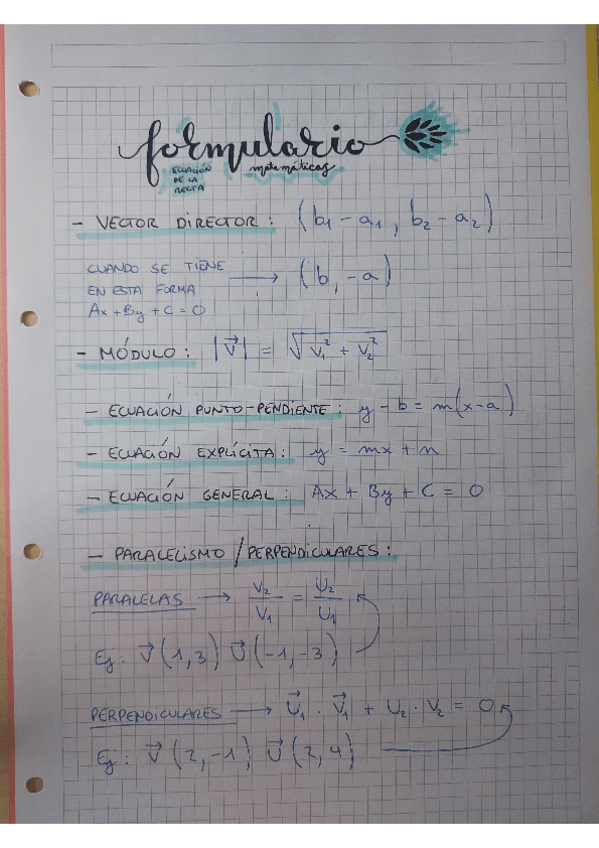 formulario
ECUACIÓN DE LA RECTA
matemáticas
- VECTOR DIRECTOR: (b₁ - a₁, b₂ - a₂)
CUANDO SE TIENE
EN ESTA FORMA → (b, -a)
Ax + By + C = 0
- MÓDULO: |V⃗| = √(V₁² + V₂²)
- ECUACIÓN PUNTO-PENDIENTE: y - b = m(x-a)
- ECUACIÓN EXPLÍCITA: y = mx + n
- ECUACIÓN GENERAL: Ax + By + C = 0
- PARALELISMO / PERPENDICULARES:
PARALELAS → V₂/V₁ = U₂/U₁
Ej: V⃗(1,3) U⃗(-1,-3)
PERPENDICULARES → U⃗₁ · V⃗₁ + U₂ · V₂ = 0
Ej: V⃗(2,-1) U⃗(2,4)